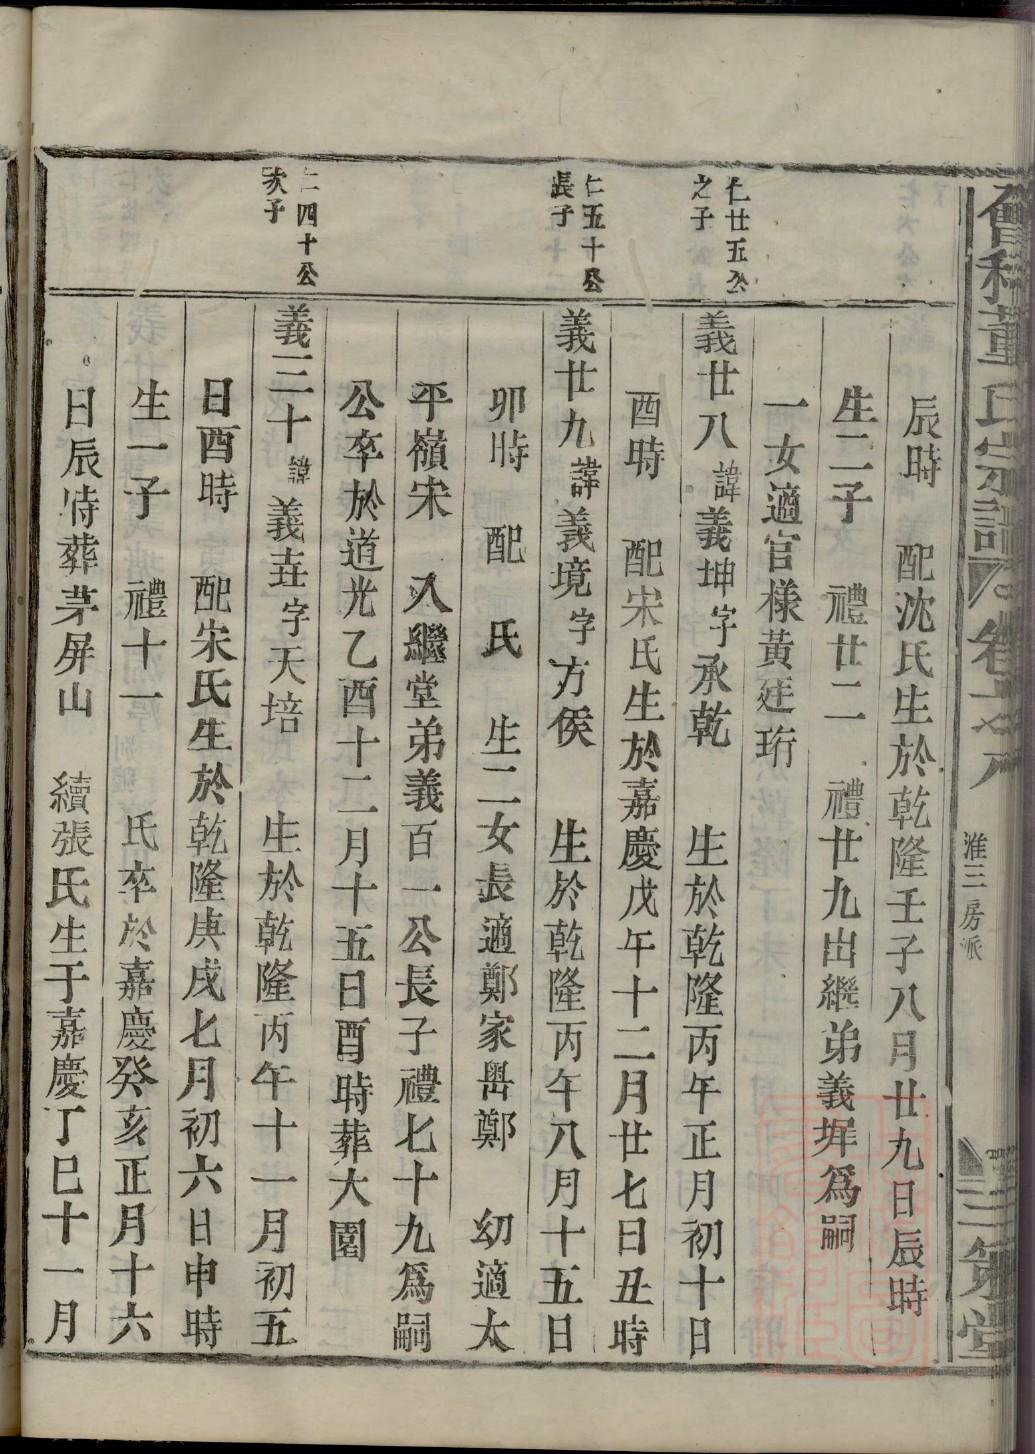 董氏宗譜 卷之六
淮三房派
三策堂
辰時 配沈氏生於乾隆壬子八月廿九日辰時
生二子 禮廿二 禮廿九出繼弟義墀爲嗣
一女適官様黃廷珩
仁廿五公
之子
義廿八諱義坤字承乾 生於乾隆丙午正月初十日
酉時 配宋氏生於嘉慶戊午十二月廿七日丑時
仁五十公
長子
義廿九諱義境字方侯 生於乾隆丙午八月十五日
卯時 配 氏 生二女長適鄭家嶴鄭 幼適太
平嶺宋 入繼堂弟義百一公長子禮七十九爲嗣
公卒於道光乙酉十二月十五日酉時葬大園
仁四十公
次子
義三十諱義垚字天培 生於乾隆丙午十一月初五
日酉時 配宋氏生於乾隆庚戌七月初六日申時
生一子 禮十一 氏卒於嘉慶癸亥正月十六
日辰時葬茅屏山 續張氏生于嘉慶丁巳十一月